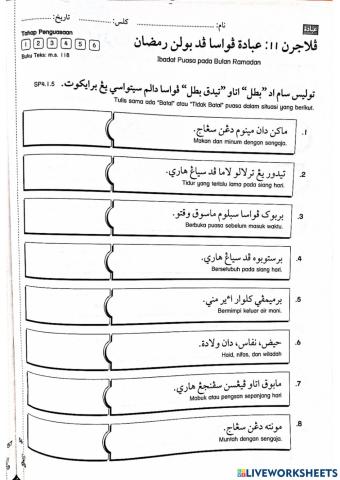 نام:
كلس:
تاريخ:
عبادة
Tahap Penguasaan
1 2 3 4 5 6
Buku Teks: m.s. 118
ڤلاجرن 11: عبادة ڤواسا ڤد بولن رمضان
Ibadat Puasa pada Bulan Ramadan
SP4.1.5
توليس سام اد "بطل" اتاو "تيدق بطل" ڤواسا دالم سيتواسي يڠ برايكوت.
Tulis sama ada "Batal" atau "Tidak Batal" puasa dalam situasi yang berikut.
1. ماكن دان مينوم دڠن سڠاج.
Makan dan minum dengan sengaja.
2. تيدور يڠ ترلالو لاما ڤد سياڠ هاري.
Tidur yang terlalu lama pada siang hari.
3. بربوك ڤواسا سبلوم ماسوق وقتو.
Berbuka puasa sebelum masuk waktu.
4. برستوبوه ڤد سياڠ هاري.
Bersetubuh pada siang hari.
5. برميمڤي كلوار اءير مني.
Bermimpi keluar air mani.
6. حيض، نفاس، دان ولادة.
Haid, nifas, dan wiladah
7. مابوق اتاو ڤيڠسن سڤنجڠ هاري.
Mabuk atau pengsan sepanjang hari
8. مونته دڠن سڠاج.
Muntah dengan sengaja.
LIVEWORKSHEETS